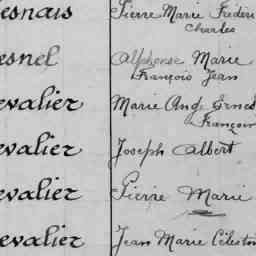 esnais Pierre Marie Frédéri
Charles
esnel Alphonse Marie
François Jean
evalier Marie Ange Ernest
François
evalier Joseph Albert
evalier Pierre Marie
evalier Jean Marie Célestin